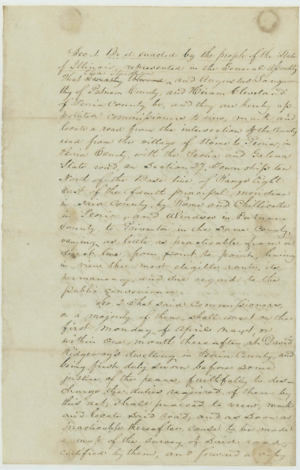 Sec. 1 Be it enacted by the people of the State
of Illinois, represented in the General Assembly
That and Augustus
of Putnam County, and Hiram Cleveland
of Peoria County be, and they are hereby ap
pointed commissioners to view, mark and
locate a road from the intersection of the County
road from the village of Rome to Peoria, in
Peoria County, with the Peoria and Galena
State road on Section 27, Township ten
North of the Base line, Range eight
East of the fourth principal meridian
in Peoria County, by Rome and Chillicothe
in Peoria, and Windsor in Putnam
County to Princeton in the same County
varying as little as practicable from a
direct line, from point to point, having
in view the most eligible route, its
permanency, and due regard to the
public convenience.
Sec 2 That said Commissioners,
or a majority of them, shall meet on the
first Monday of April next, or
within one month thereafter, at David
Ridgeway's dwelling, in Peoria County, and
being first duly sworn before some
justice of the peace, faithfully to dis-
charge the duties required of them by
this act, shall proceed to view, mark
and locate said road, and as soon as
practicable thereafter, cause to be made
a map of the survey of said road,
certified by them, and forward a copy